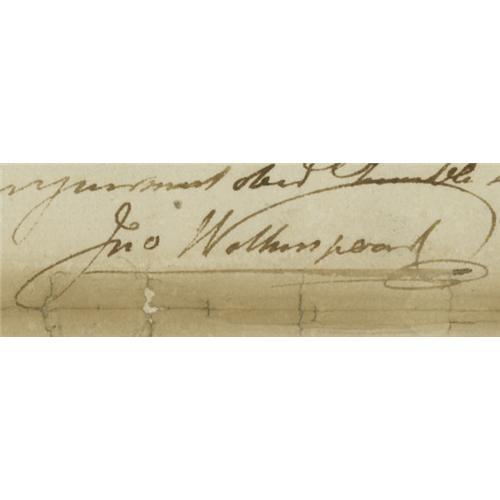 your most obed humble
Jno Witherspoon